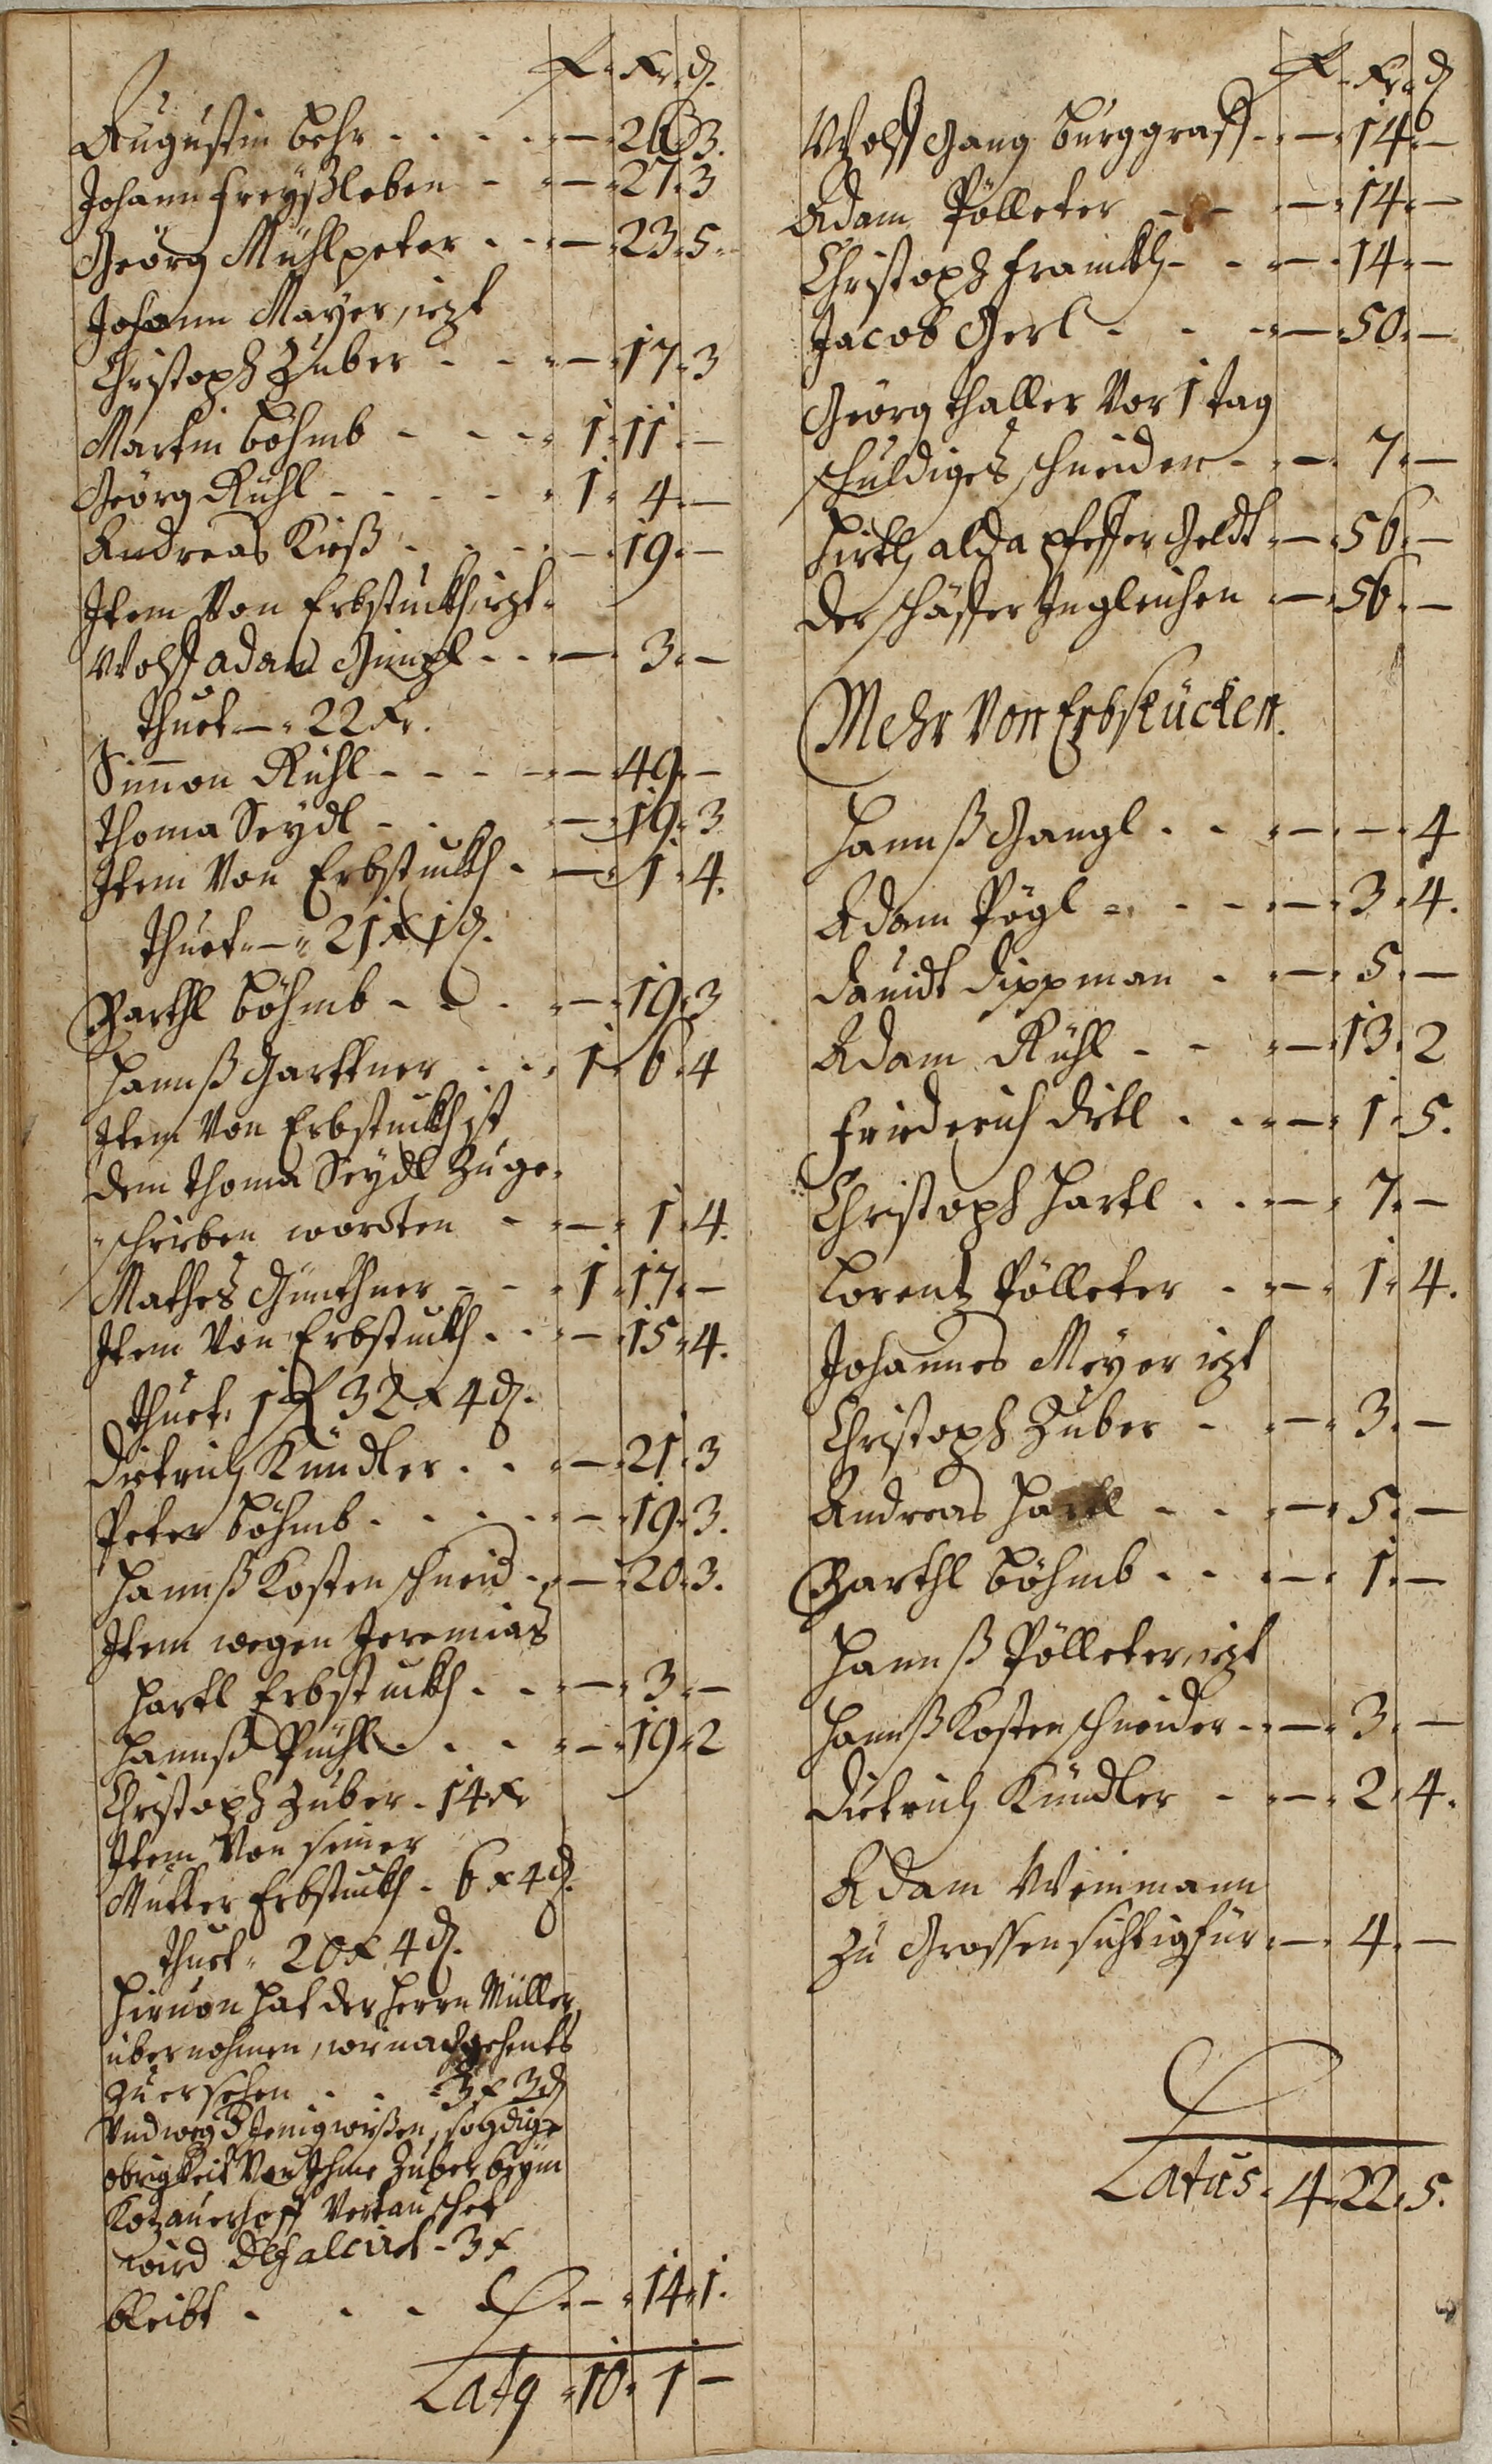 f. Kr. d.
Augustin Behr - - - - — 26 3.
Johann Freyßleben - - — 27. 3
Geörg Mühlpeter - - — 23. 5.
Johann Mayer, iezt
Christoph Zuber - - — 17. 3
Martin Böhmb - - - 1. 11. —
Geörg Rühl - - - - - 1. 4. —
Andreas Kieß - - - — 19. —
Item Von Erbstuckh, iezt
Wolff Adam - - — 3. —
thuet — 22 Kr.
Simon Rühl - - - — 49. —
Thoma Seydl - - — 19. 3
Item Von Erbstuckh - — 1. 4.
thuet — 21 x 1 d.
Barthl Böhmb - - - — 19. 3
Hannß Garttner - - 1. 6. 4
Item Von Erbstuckh ist
dem Thoma Seydl Zuge-
schrieben wordten - — 1. 4.
Mathes Günthner - - 1. 17. —
Item Von Erbstuckh - - — 15. 4.
thuet. 1 f 32 x 4 d.
Dietrich Kündler - - — 21. 3
Peter Böhmb - - - - — 19. 3.
Hannß Kostenschneid - — 20. 3.
Item wegen Jeremias
Hartl Erbstuckh - - — 3. —
Hannß Püchl - - - — 19. 2
Christoph Zuber - 14 Kr
Item Von seiner
Mutter Erbstuckh - 6 x 4 d.
thuet - 20 x 4 d.
Hieruon hat der Herrn Müller
übernohmen, wie nachgehents
zuersehen - - 3 x 3 d
Vnd weg
obrigkeit Von Ihme Zuber beÿm
Kotzauerhoff Vertauschet
wird defalcirt - 3 x
bleibt - - - - — 14. 1.
Lat9 - 10. 1 —
f. Kr. d
Wolff Gang Burggraff - — 14. —
Adam Pölleter - - — 14. —
Christoph Frankh - - — 14. —
Jacob Gerl - - - — 50. —
Geörg Thaller Vor 1 tag
schuldiges schneiden - — 7. —
Hirth alda pfeffer Geldt — 56. —
der Schäffer Ingleichen — 56. —
Mehr Von Erbstücken.
Hannß Gangl - - — — 4
Adam Pögl - - - — 3. 4.
Dauidt Dippman - — 5. —
Adam Rühl - - — 13. 2
Friederich Dietl - - — 1. 5.
Christoph Hartl - - — 7. —
Lorentz Pölleter - — 1. 4.
Johannes Meyer iezt
Christoph Zuber - — 3. —
Andreas Hartl - - — 5. —
Barthl Böhmb - - — 1. —
Hannß Pölleter, iezt
Hannß Kostenschneider - — 3. —
Dietrich Kündler - — 2. 4.
Adam Weinmann
Zu Grossensichtigfür — 4. —
Latus. 4. 22. 5.